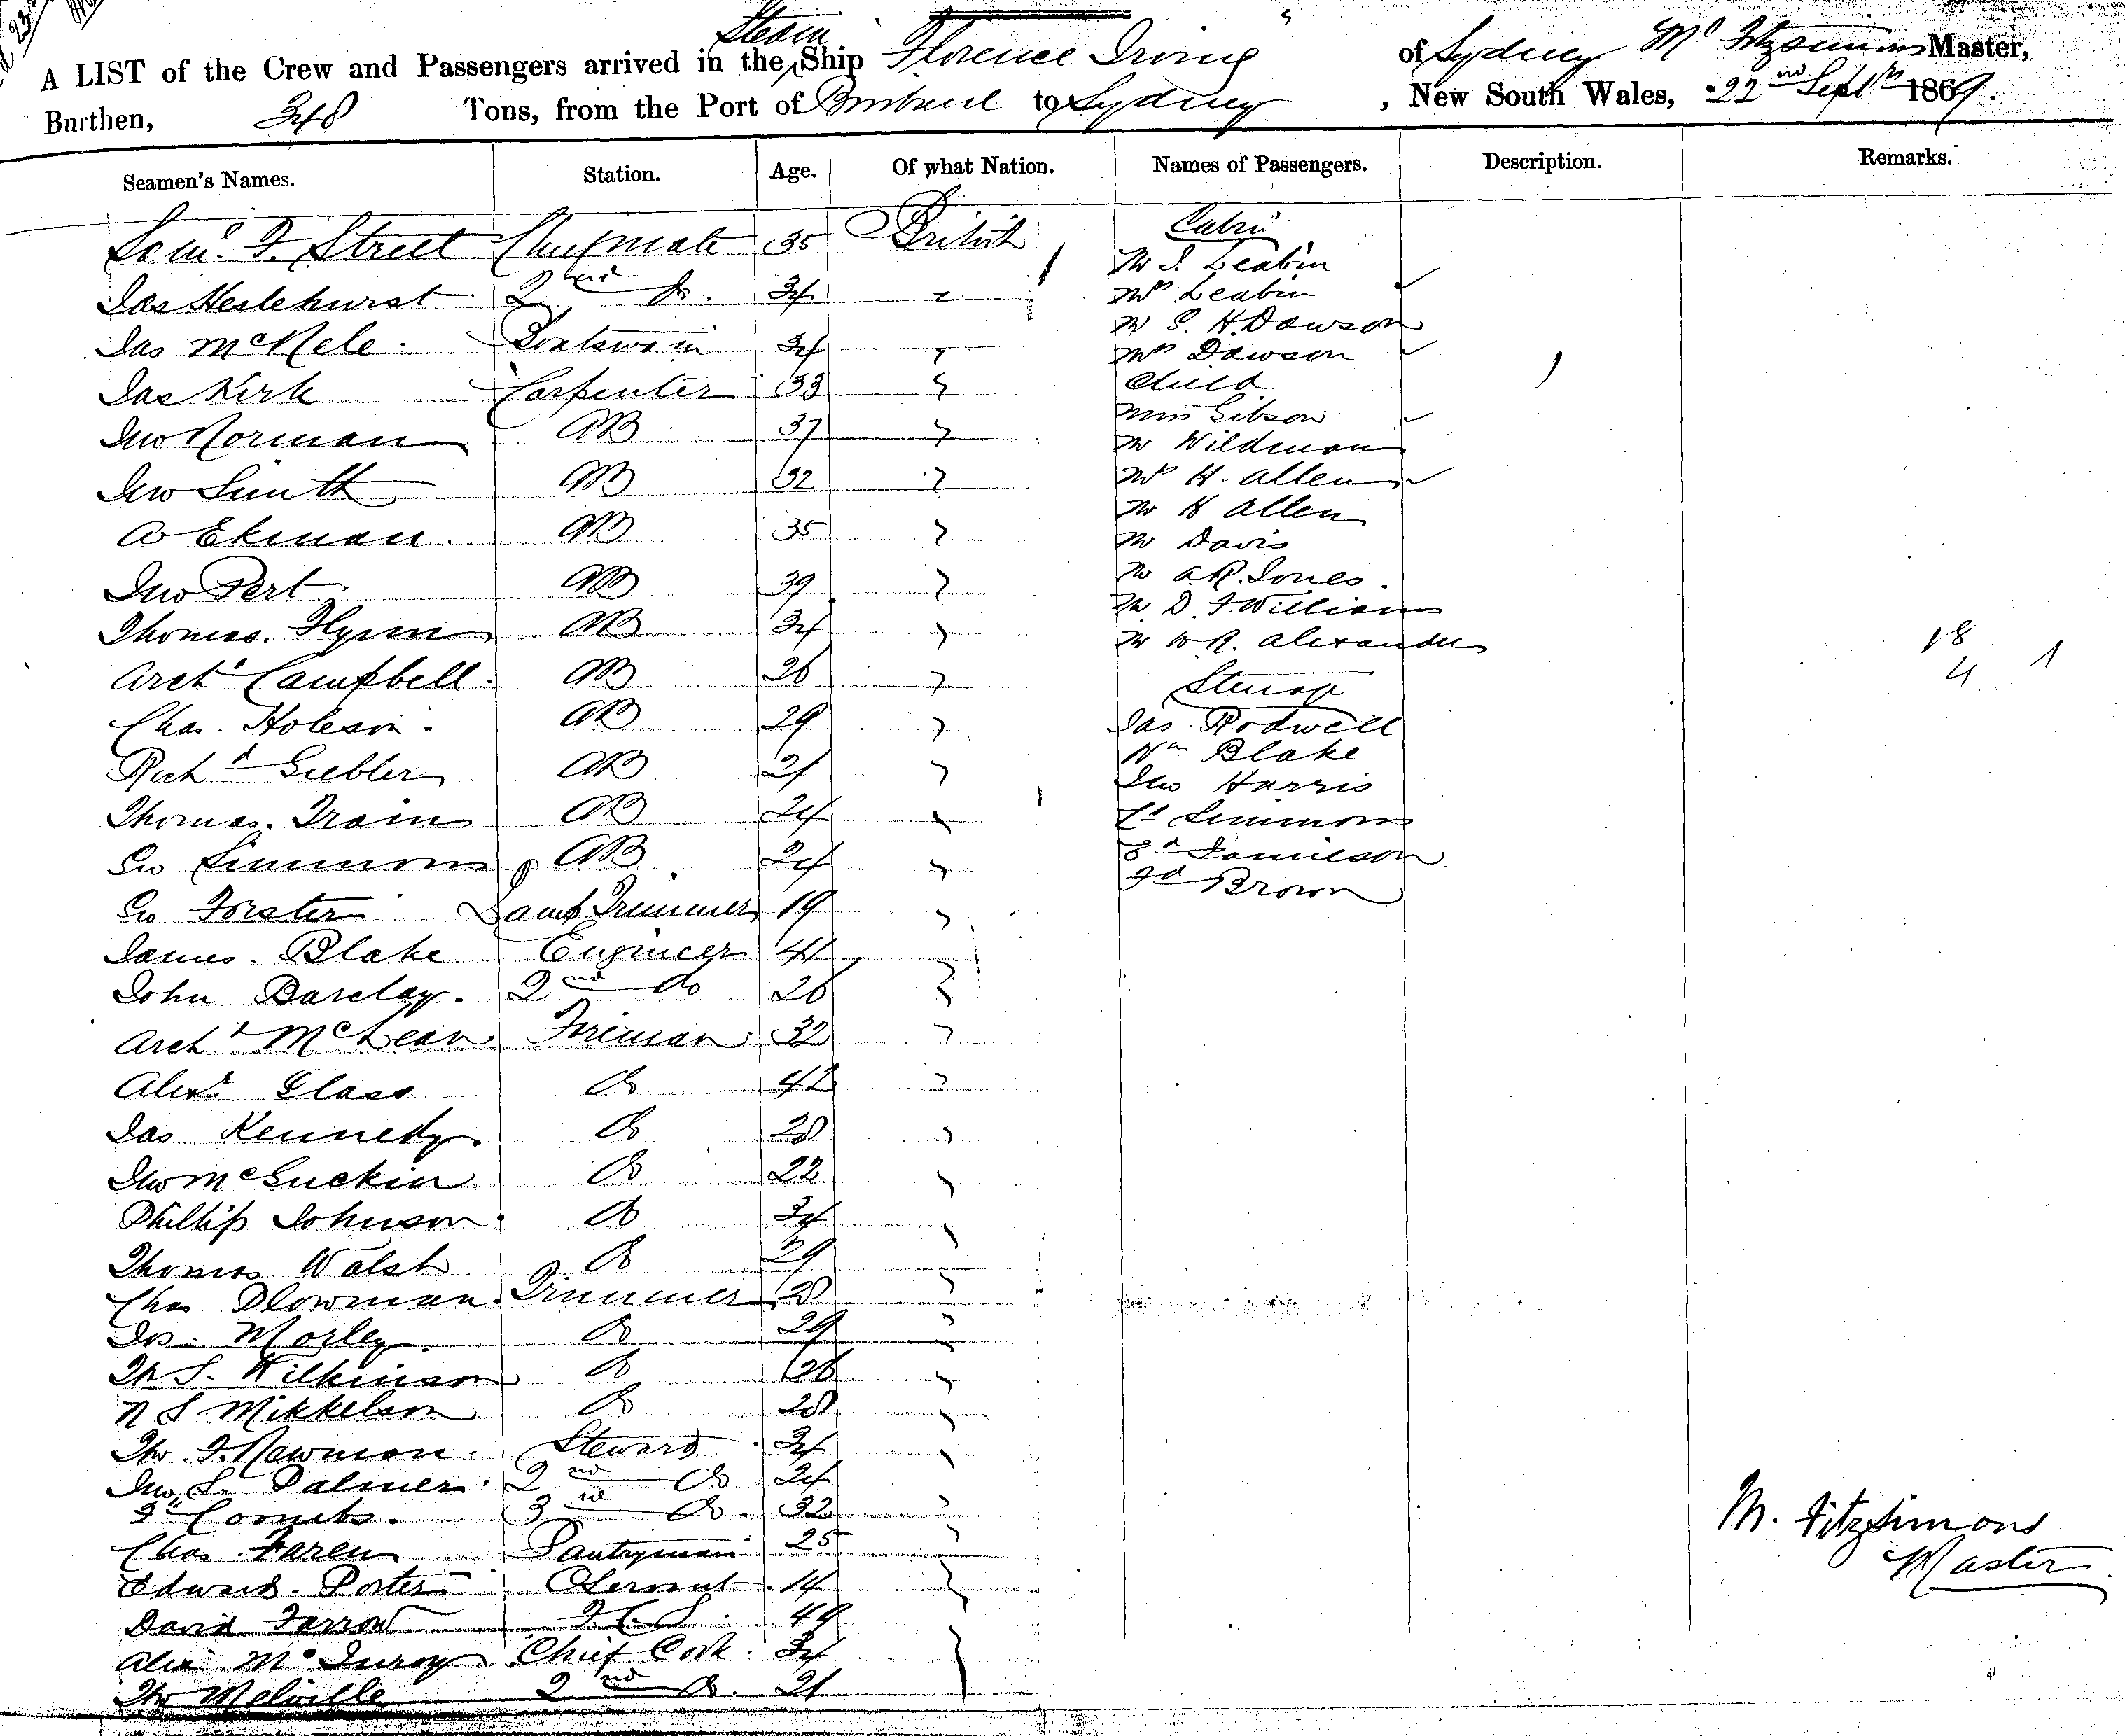 Steam
A LIST of the Crew and Passengers arrived in the Ship Florence Irving of Sydney M. Fitzsimons Master,
Burthen, 348 Tons, from the Port of Brisbane to Sydney, New South Wales, 22nd Sept 1869.
Seamen's Names. Station. Age. Of what Nation. Names of Passengers. Description. Remarks.
Saml. F. Street Chief mate 35 British
Jas Heslehurst 2nd Do. 34 "
Jas McNele Boatswain 34 "
Jas Kirk Carpenter 33 "
Jno Norman AB 37 "
Jno Smith AB 32 "
A Ekman AB 35 "
Jno Pert AB 39 "
Thomas Flynn AB 34 "
Archd Campbell AB 26 "
Chas. Holeson AB 29 "
Richd Giebler AB 21 "
Thomas Train AB 24 "
Geo Simmons AB 24 "
Geo Forster Lamp Trimmer 19 "
James Blake Engineer 41 "
John Barclay 2nd do 26 "
Archd McLean Fireman 32 "
Alexr Glass Do 42 "
Jas Kennedy Do 28 "
Jno McGuckin Do 22 "
Phillip Johnson Do 34 "
Thomas Walsh Do 29 "
Chas Plowman Trimmer 28 "
Jas Morley Do 29 "
Th S. Wilkinson Do 26 "
N S Mikkelson Do 28 "
Thos. F. Newman Steward 34 "
Jno S. Palmer 2nd Do 24 "
Coombs 3rd Do. 32 "
Chas Faren Pantryman 25 "
Edward Porter Servant 14
David Farrow F.C.S. 49
Alexr McInroy Chief Cook 34
Thos Melville 2nd Do. 21
Cabin
Mr J. Leabin
Mrs Leabin
Mr S. H. Dawson
Mrs Dawson
Child
Miss Gibson
Mr Wildman
Mrs H. Allen
Mr H Allen
Mr Davis
Mr A.R. Jones
Mr D. F. Williams
Mr W R. Alexander
Steerage
Jas. Rodwell
Wm Blake
Jno Harris
Cs Simmons
Ed Jamieson
Fd Brown
18
4
1
M. Fitzsimons
Master